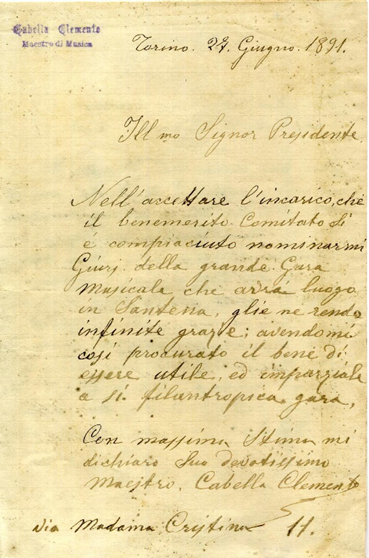 Cabella Clemente
Maestro di Musica
Torino. 27. Giugno. 1891.
Ill mo Signor Presidente
Nell'accettare l'incarico, che
il benemerito Comitato si
é compiaciuto nominarmi
Giurì. della grande Gara
Musicala che avrá luogo
in Santena, glie ne rendo
infinite grazie; avendomi
cosi procurato il bene di
essere utile, ed imparziale
a sí filantropica gara,
Con massima stima mi
dichiaro Suo devotissimo
Maestro. Cabella Clemente
Via Madama Cristina 11.